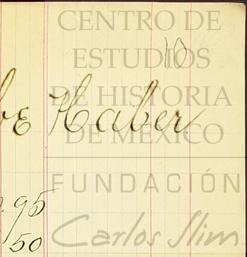 CENTRO DE
ESTUDIOS
DE HISTORIA
DE MÉXICO
10
be Haber
FUNDACIÓN
Carlos Slim
95
50